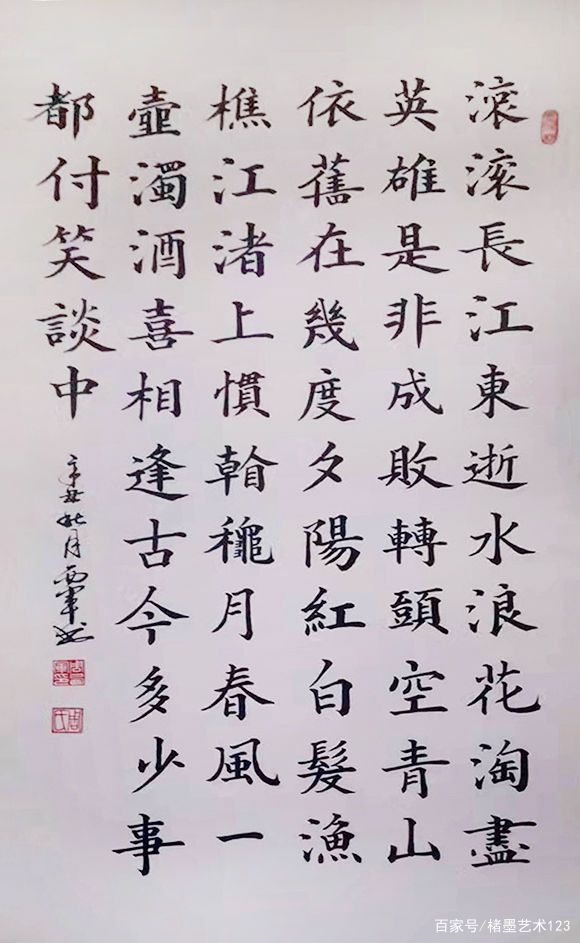 滚滚長江東逝水浪花淘盡
英雄是非成敗轉頭空青山
依舊在幾度夕陽紅白髮漁
樵江渚上慣㫪龝月春風一
壺濁酒喜相逢古今多少事
都付笑談中
辛丑
月
百家号/楮墨艺术123